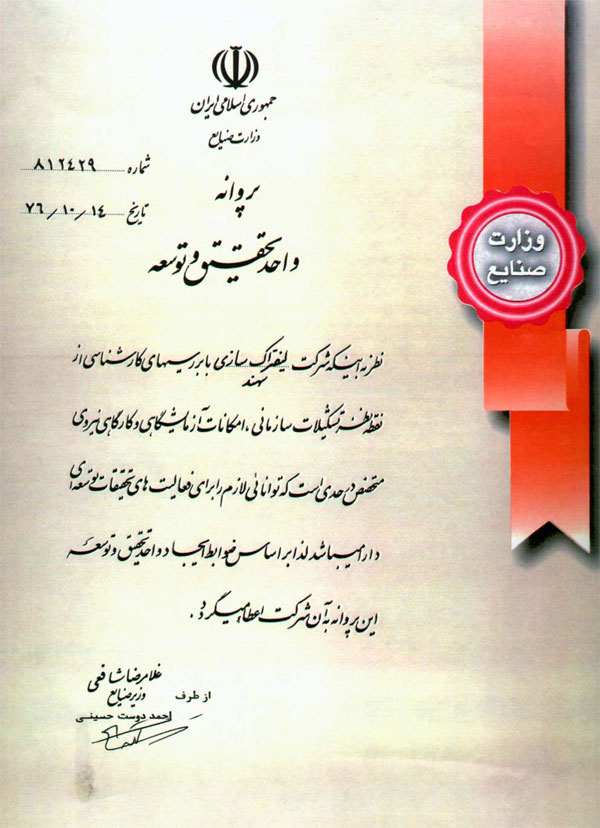 جمهوری اسلامی ایران
وزارت صنایع
شماره ۸۱۲۴۲۹
تاریخ ۷۶/۱۰/۱۴
پروانه
واحد تحقیق و توسعه
وزارت
صنایع
نظر به اینکه شرکت لیفتراک سازی با بررسیهای کارشناسی از
سهند
نقطه نظر تشکیلات سازمانی ، امکانات آزمایشگاهی و کارگاهی نیروی
متخصص در حدی است که توانائی لازم را برای فعالیت های تحقیقات توسعه ای
دارا میباشد لذا بر اساس ضوابط ایجاد واحد تحقیق و توسعه
این پروانه به آن شرکت اعطا میگردد .
غلامرضا شافعی
وزیر صنایع
از طرف
احمد دوست حسینی